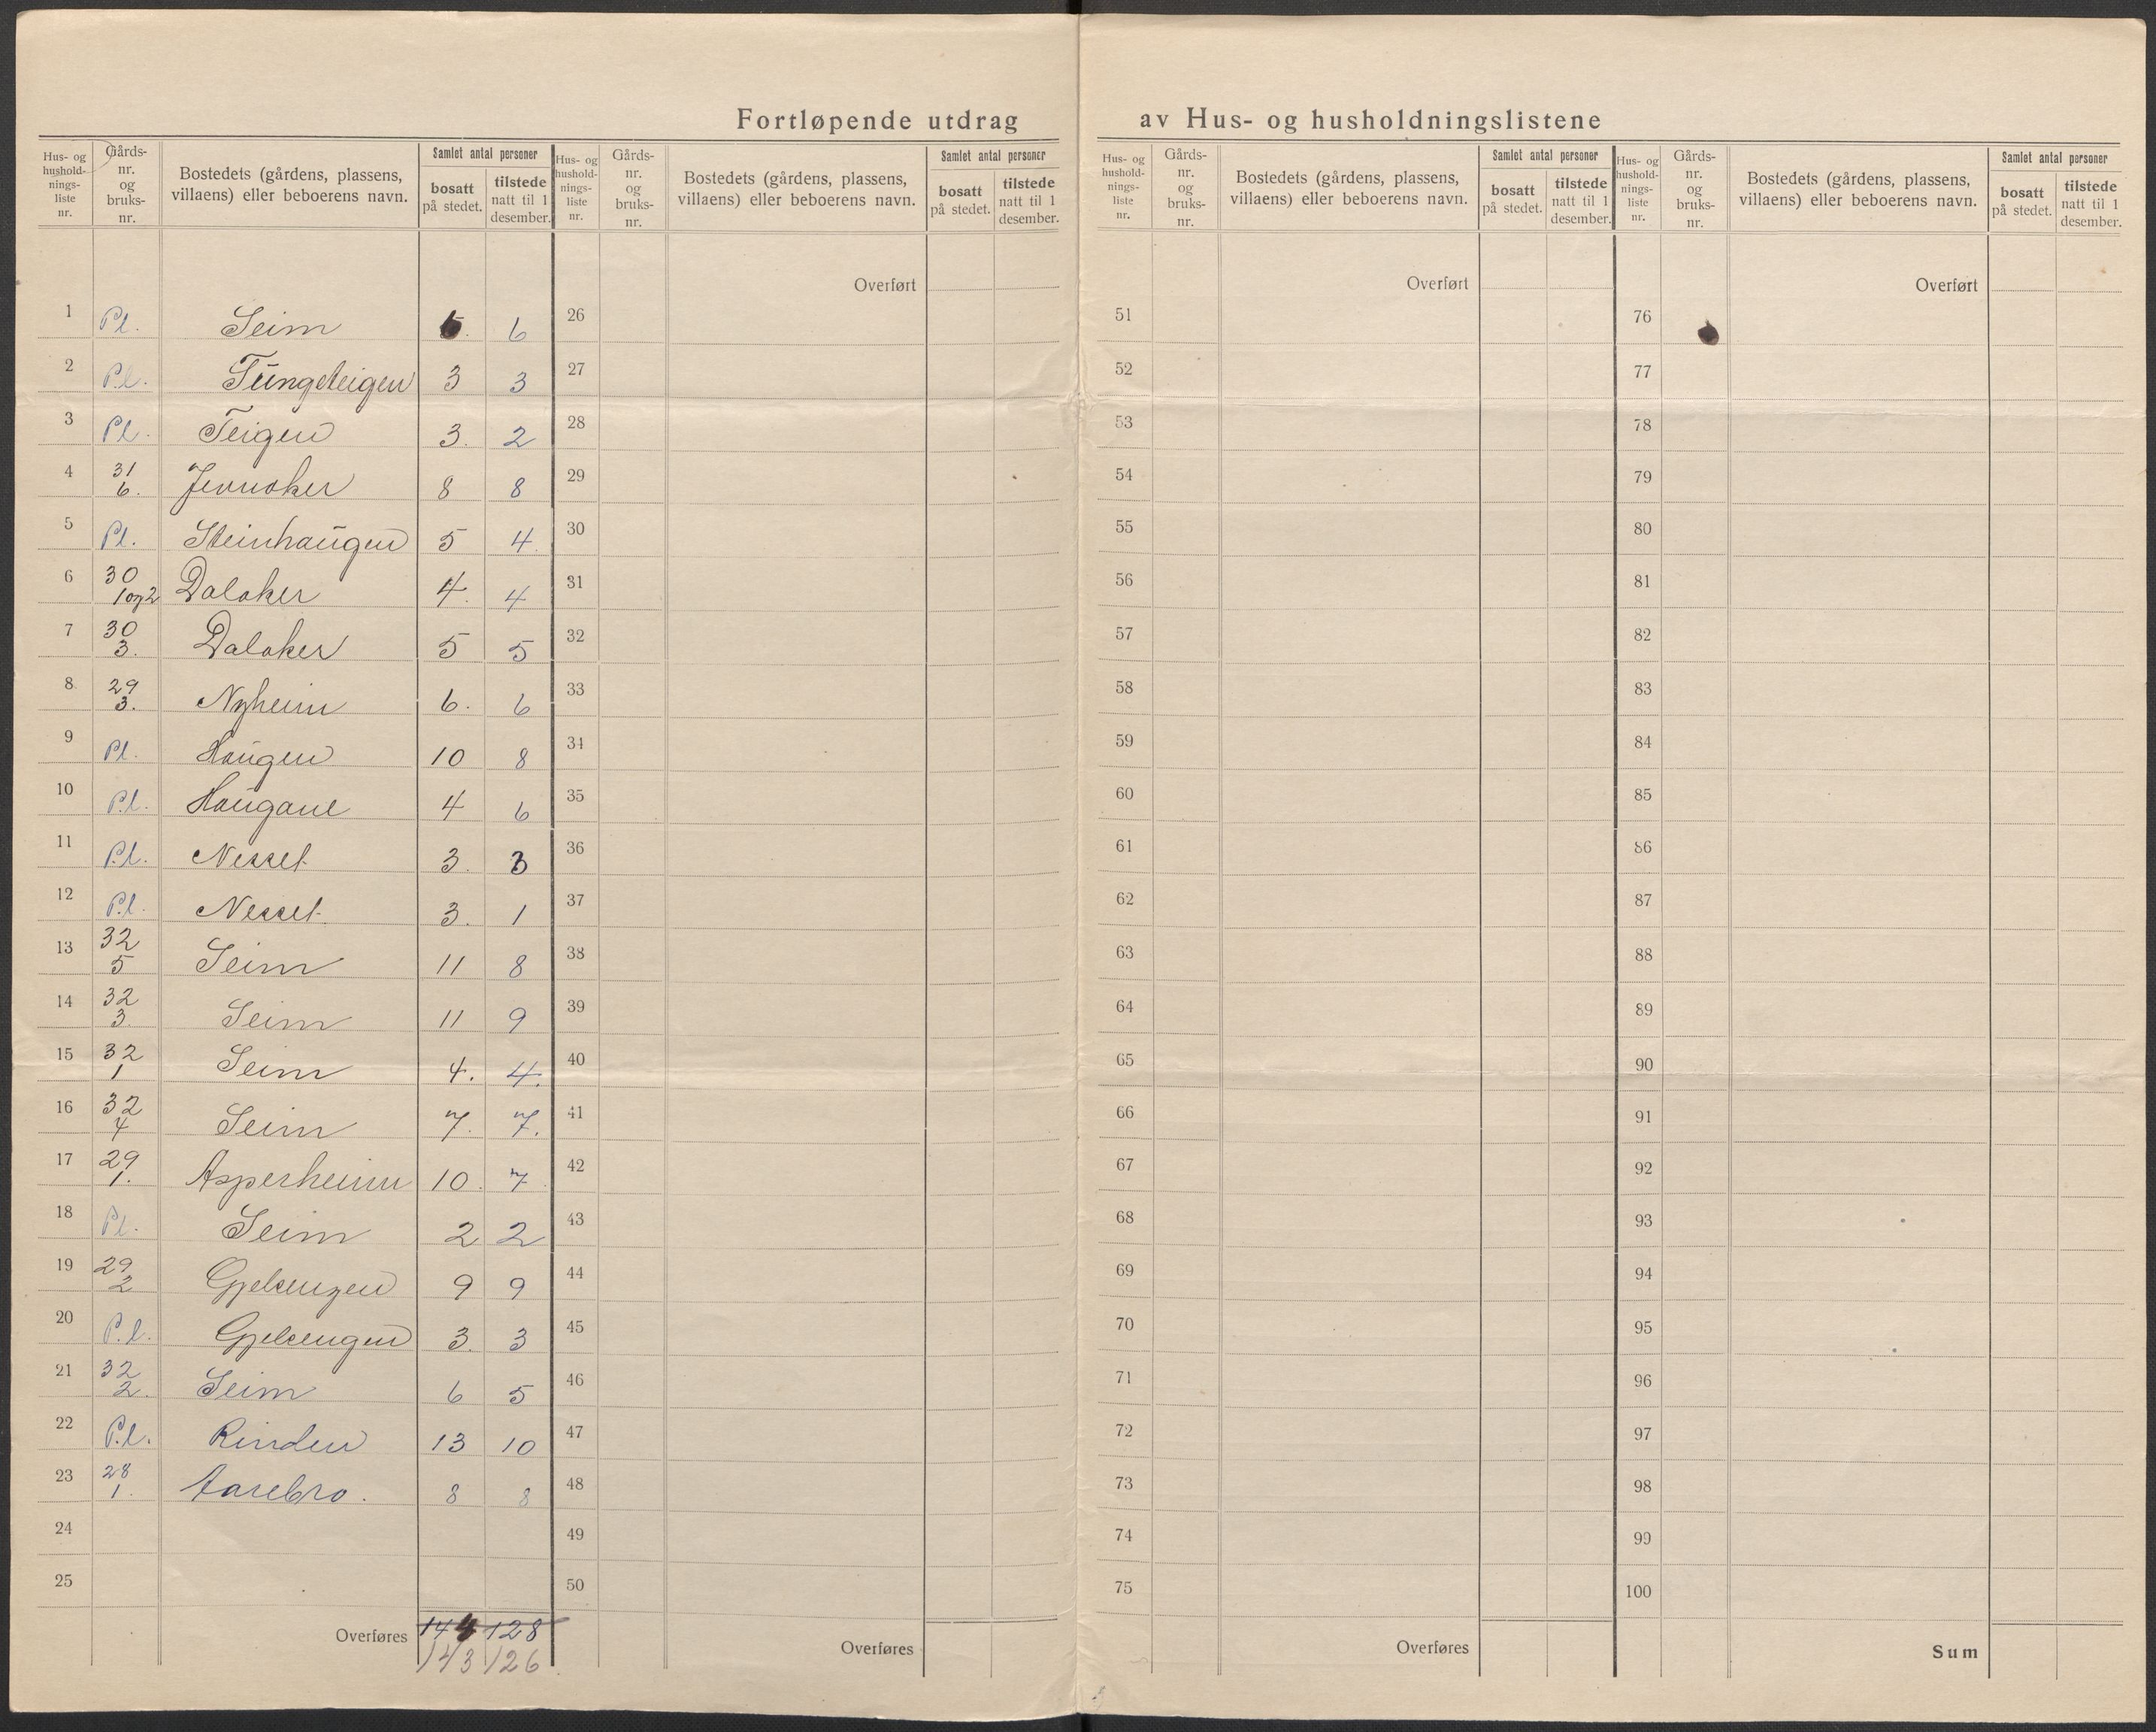 Fortløpende utdrag av Hus- og husholdningslistene
Hus- og hushold-nings-liste nr. | Gårds-nr. og bruks-nr. | Bostedets (gårdens, plassens, villaens) eller beboerens navn. | Samlet antal personer | bosatt på stedet. | tilstede natt til 1 desember.
Hus- og hushold-nings-liste nr. | Gårds-nr. og bruks-nr. | Bostedets (gårdens, plassens, villaens) eller beboerens navn. | Samlet antal personer | bosatt på stedet. | tilstede natt til 1 desember.
Hus- og hushold-nings-liste nr. | Gårds-nr. og bruks-nr. | Bostedets (gårdens, plassens, villaens) eller beboerens navn. | Samlet antal personer | bosatt på stedet. | tilstede natt til 1 desember.
Hus- og hushold-nings-liste nr. | Gårds-nr. og bruks-nr. | Bostedets (gårdens, plassens, villaens) eller beboerens navn. | Samlet antal personer | bosatt på stedet. | tilstede natt til 1 desember.
1 Pl. Seim 6
2 Pl. Tungeteigen 3 3
3 Pl. Teigen 3. 2
4 31 6. Jevnaker 8 8
5 Pl. Steinhaugen 5 4.
6 30 1og2 Dalaker 4. 4
7 30 3. Dalaker 5 5
8 29 3. Nyheim 6. 6
9 Pl. Haugen 10 8
10 Pl. Haugane 4 6
11 Pl. Nesset 3. 3
12 Pl. Nesset 3. 1
13 32 5 Seim 11 8
14 32 3. Seim 11 9
15 32 1 Seim 4. 4.
16 32 4 Seim 7. 7.
17 29 1. Asperheim 10. 7.
18 Pl. Seim 2 2
19 29 2 Gjelsengen 9 9
20 P.l. Gjelsengen 3. 3
21 32 2. Seim 6 5
22 P.l. Rinden 13 10
23 28 1. Aarebro. 8 8
24
25
Overføres 144 128
143 126
Overført
26
27
28
29
30
31
32
33
34
35
36
37
38
39
40
41
42
43
44
45
46
47
48
49
50
Overføres
Overført
51
52
53
54
55
56
57
58
59
60
61
62
63
64
65
66
67
68
69
70
71
72
73
74
75
Overføres
Overført
76
77
78
79
80
81
82
83
84
85
86
87
88
89
90
91
92
93
94
95
96
97
98
99
100
Sum